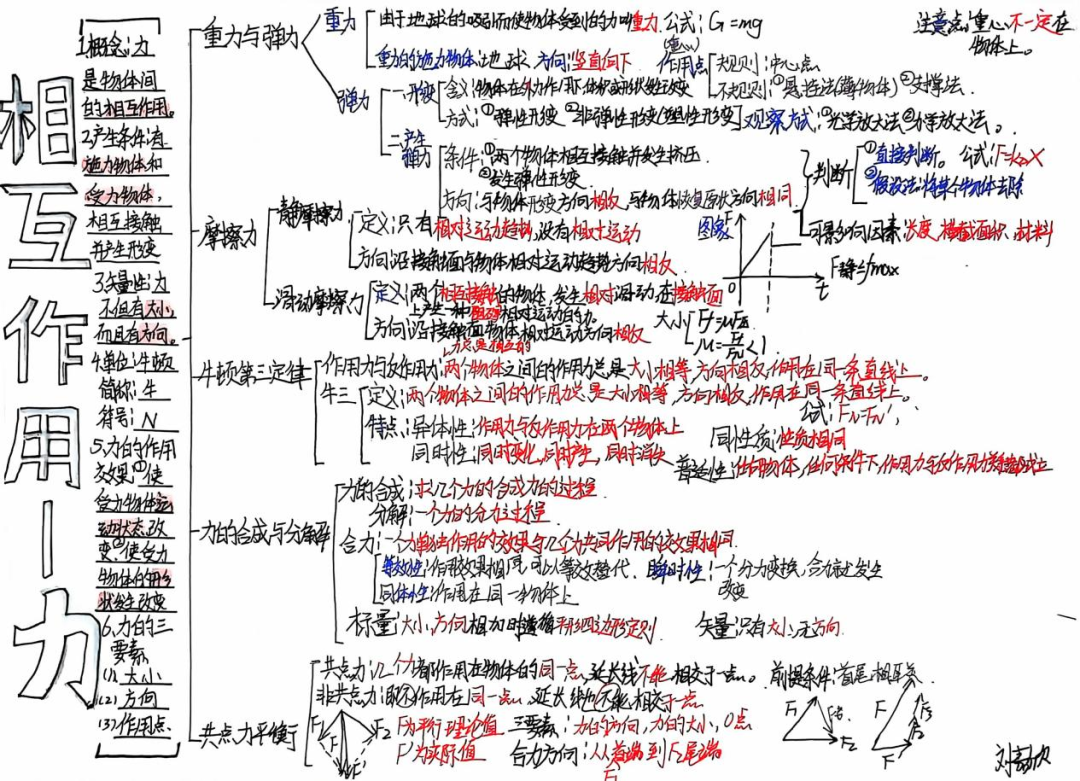 相互作用—力
1.概念:力
是物体间
的相互作用。
2.产生条件:有
施力物体和
受力物体,
相互接触
并产生形变
3.矢量性:力
不但有大小,
而且有方向。
4.单位:牛顿
简称:牛
符号:N
5.力的作用
效果①使
受力物体运
动状态改
变②使受力
物体的形
状发生改变
6.力的三
要素
(1)大小
(2)方向
(3)作用点
重力与弹力
重力
由于地球的吸引而使物体受到的力叫重力 公式:G=mg
重力的施力物体:地球 方向:竖直向下 (重心)作用点
规则:中心点
不规则:①悬挂法(薄物体)②支撑法.
注意点:重心不一定在
物体上。
弹力
一.形变
含义:物体在外力作用下体积或形状发生改变
方式:①弹性形变 ②非弹性形变(塑性形变) 观察方式:①光学放大法②力学放大法。
二.产生弹力
条件:①两个物体相互接触并发生挤压.
②发生弹性形变.
方向:与物体形变方向相反,与物体恢复原状方向相同.
判断
①直接判断。公式:F=kx
②假设法:将某个物体去除
可影响因素:长度,横截面积,材料
摩擦力
静摩擦力
定义:只有相对运动趋势,没有相对运动
方向:沿接触面与物体相对运动趋势方向相反
图象
F
F静=fmax
0
t
滑动摩擦力
定义:两个相互接触的物体,发生相对滑动,在接触面
上产生一种阻碍相对运动的力.
方向:沿接触面物体相对运动方向相反
大小
牛顿第三定律
力总是相互的
作用力与反作用力:两个物体之间的作用力总是大小相等,方向相反,作用在同一条直线上。
牛三
定义:两个物体之间的作用力总是大小相等,方向相反,作用在同一条直线上。
公式:FN=FN′;
特点:异体性:作用力与反作用力在两个物体上
同性质:性质相同
同时性:同时变化,同时产生,同时消失
普适性:任何物体,任何条件下,作用力与反作用力关系都成立
力的合成与分解
力的合成:求几个力的合成力的过程.
分解:一个力的分力过程.
合力:一个力单独作用的效果与几个力共同作用的效果相同.
等效性:作用效果相同,可以等效替代. 瞬时性:一个分力变换,合力随之发生
改变
同体性:作用在同一物体上
标量:大小,方向相加时遵循平形四边形定则. 矢量:只有大小,无方向.
共点力平衡
共点力:几个力都作用在物体的同一点,延长线不能相交于一点。 前提条件:首尾相互牵
非共点力:既不作用在同一点,延长线也不能相交于一点
F1
F2
F
F′
F为平行理论值 三要素:力的方向,力的大小,0点
F′为实际值 合力方向:从F1首端到F2尾端
F1
F合
F2
F
F3
F2
F1